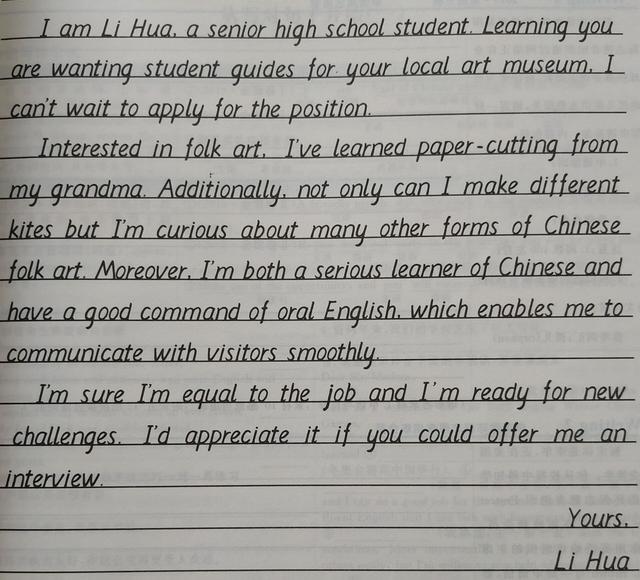 I am Li Hua, a senior high school student. Learning you
are wanting student guides for your local art museum, I
can't wait to apply for the position.
Interested in folk art, I've learned paper-cutting from
my grandma. Additionally, not only can I make different
kites but I'm curious about many other forms of Chinese
folk art. Moreover, I'm both a serious learner of Chinese and
have a good command of oral English, which enables me to
communicate with visitors smoothly.
I'm sure I'm equal to the job and I'm ready for new
challenges. I'd appreciate it if you could offer me an
interview.
Yours,
Li Hua